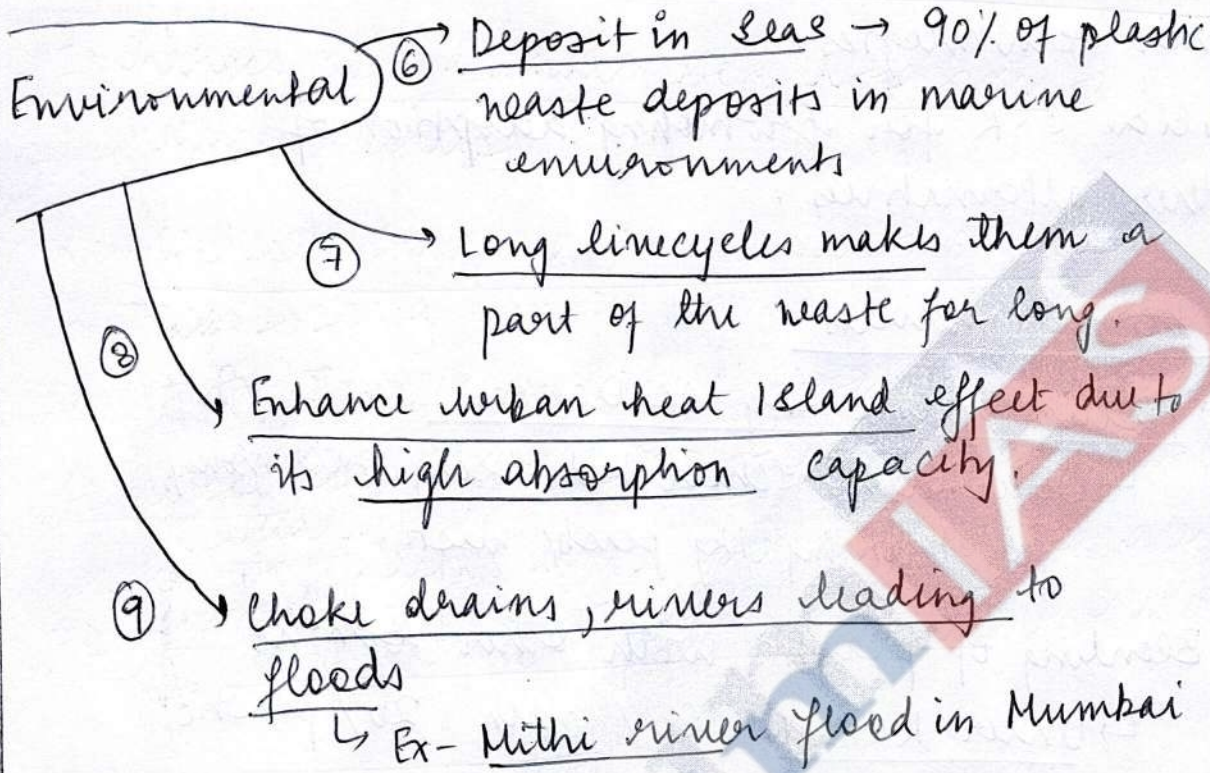 Environmental
⑥ Deposit in seas → 90% of plastic
waste deposits in marine
environments
⑦ Long linecycles makes them a
part of the waste for long.
⑧ Enhance urban heat Island effect due to
its high absorption capacity.
⑨ Choke drains, rivers leading to
floods
↳ Ex- Mithi river flood in Mumbai
mIAS